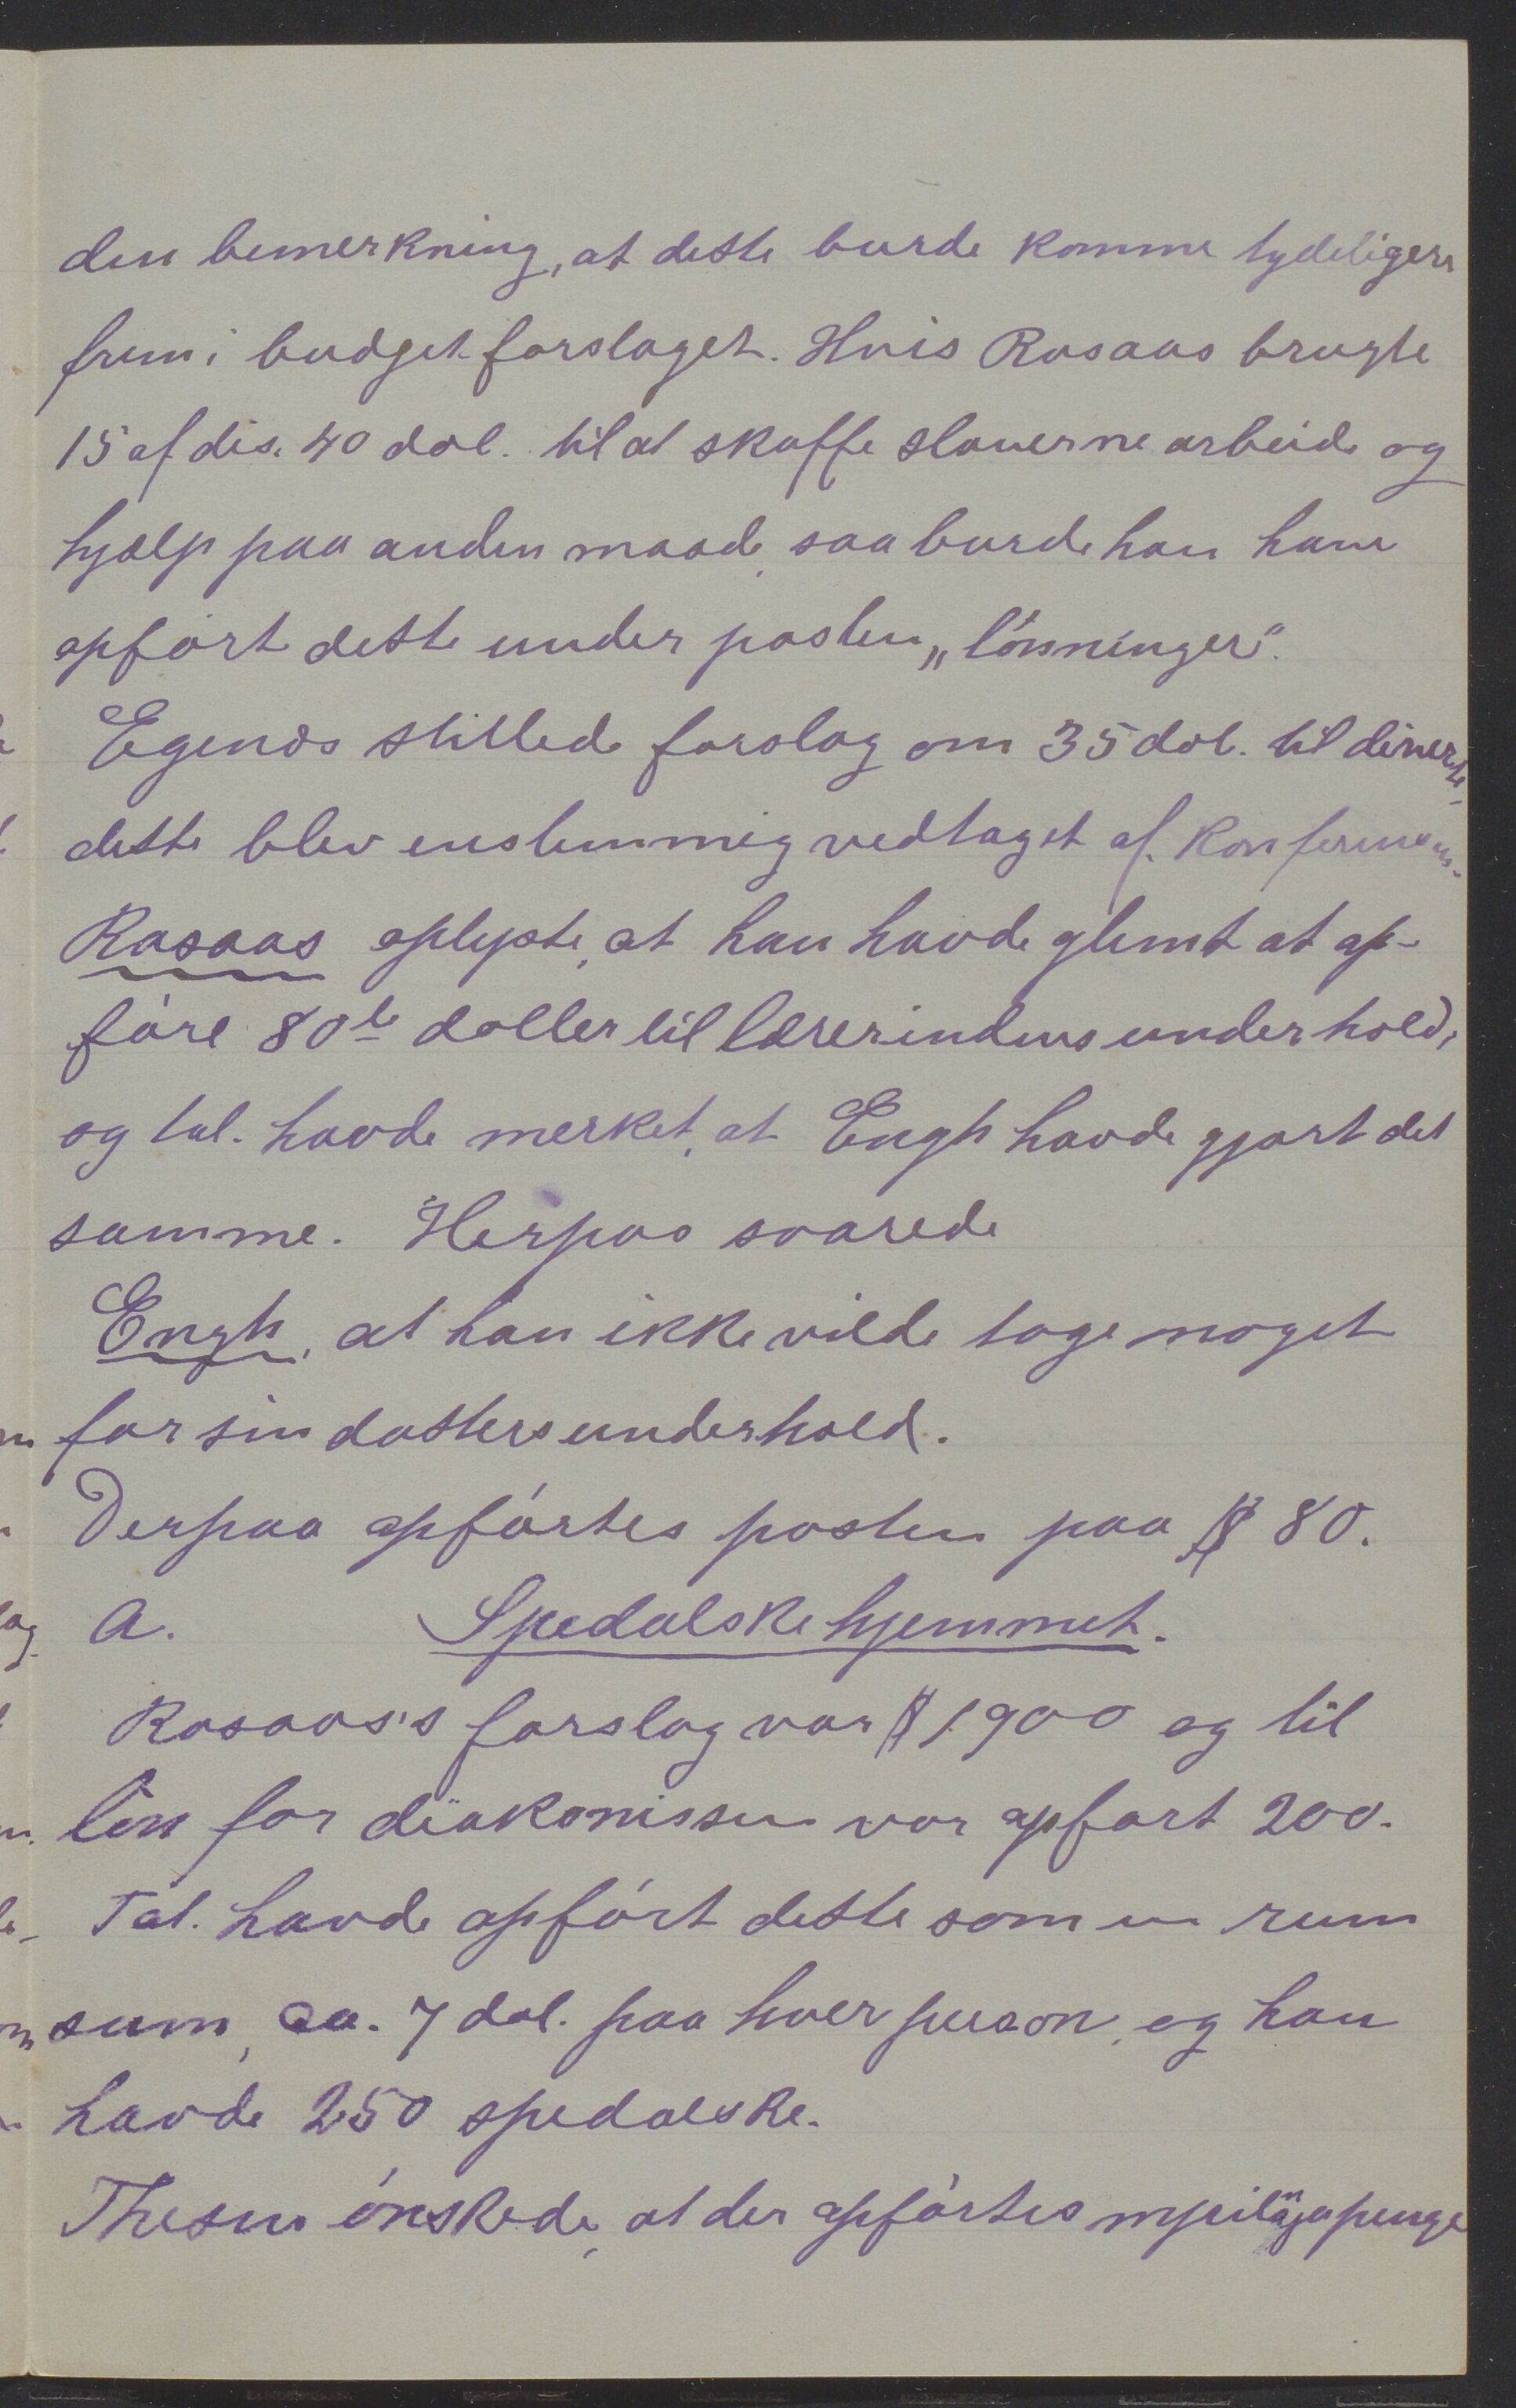 den bemerkning, at dette burde komme tydeligere
frem i budgetforslaget. Hvis Rosaas brugte
15 af dis. 40 dol. til at skaffe slaverne arbeide og
hjælp paa anden maade, saa burde han have
opført dette under posten „lønninger".
Egenæs stillede forslag om 35 dol. til diverse,
dette blev enstemmig vedtaget af. Konferensen.
Rosaas oplyste, at han havde glemt at op-
føre 80 doller til lærerindens underhold,
og tal. havde merket, at Engh havde gjort det
samme. Herpaa svarede
Engh, at han ikke vilde tage noget
for sin datters underhold.
Derpaa opførtes posten paa $ 80.
A. Spedalskehjemmet.
Rosaas's forslag var $ 1900 og til
løn for diakonissen var opført 200.
Tal. havde opført dette som en rum
sum, ca. 7 dol. paa hver person, og han
havde 250 spedalske.
Thesen ønskede, at der opførtes mpiläzapenge